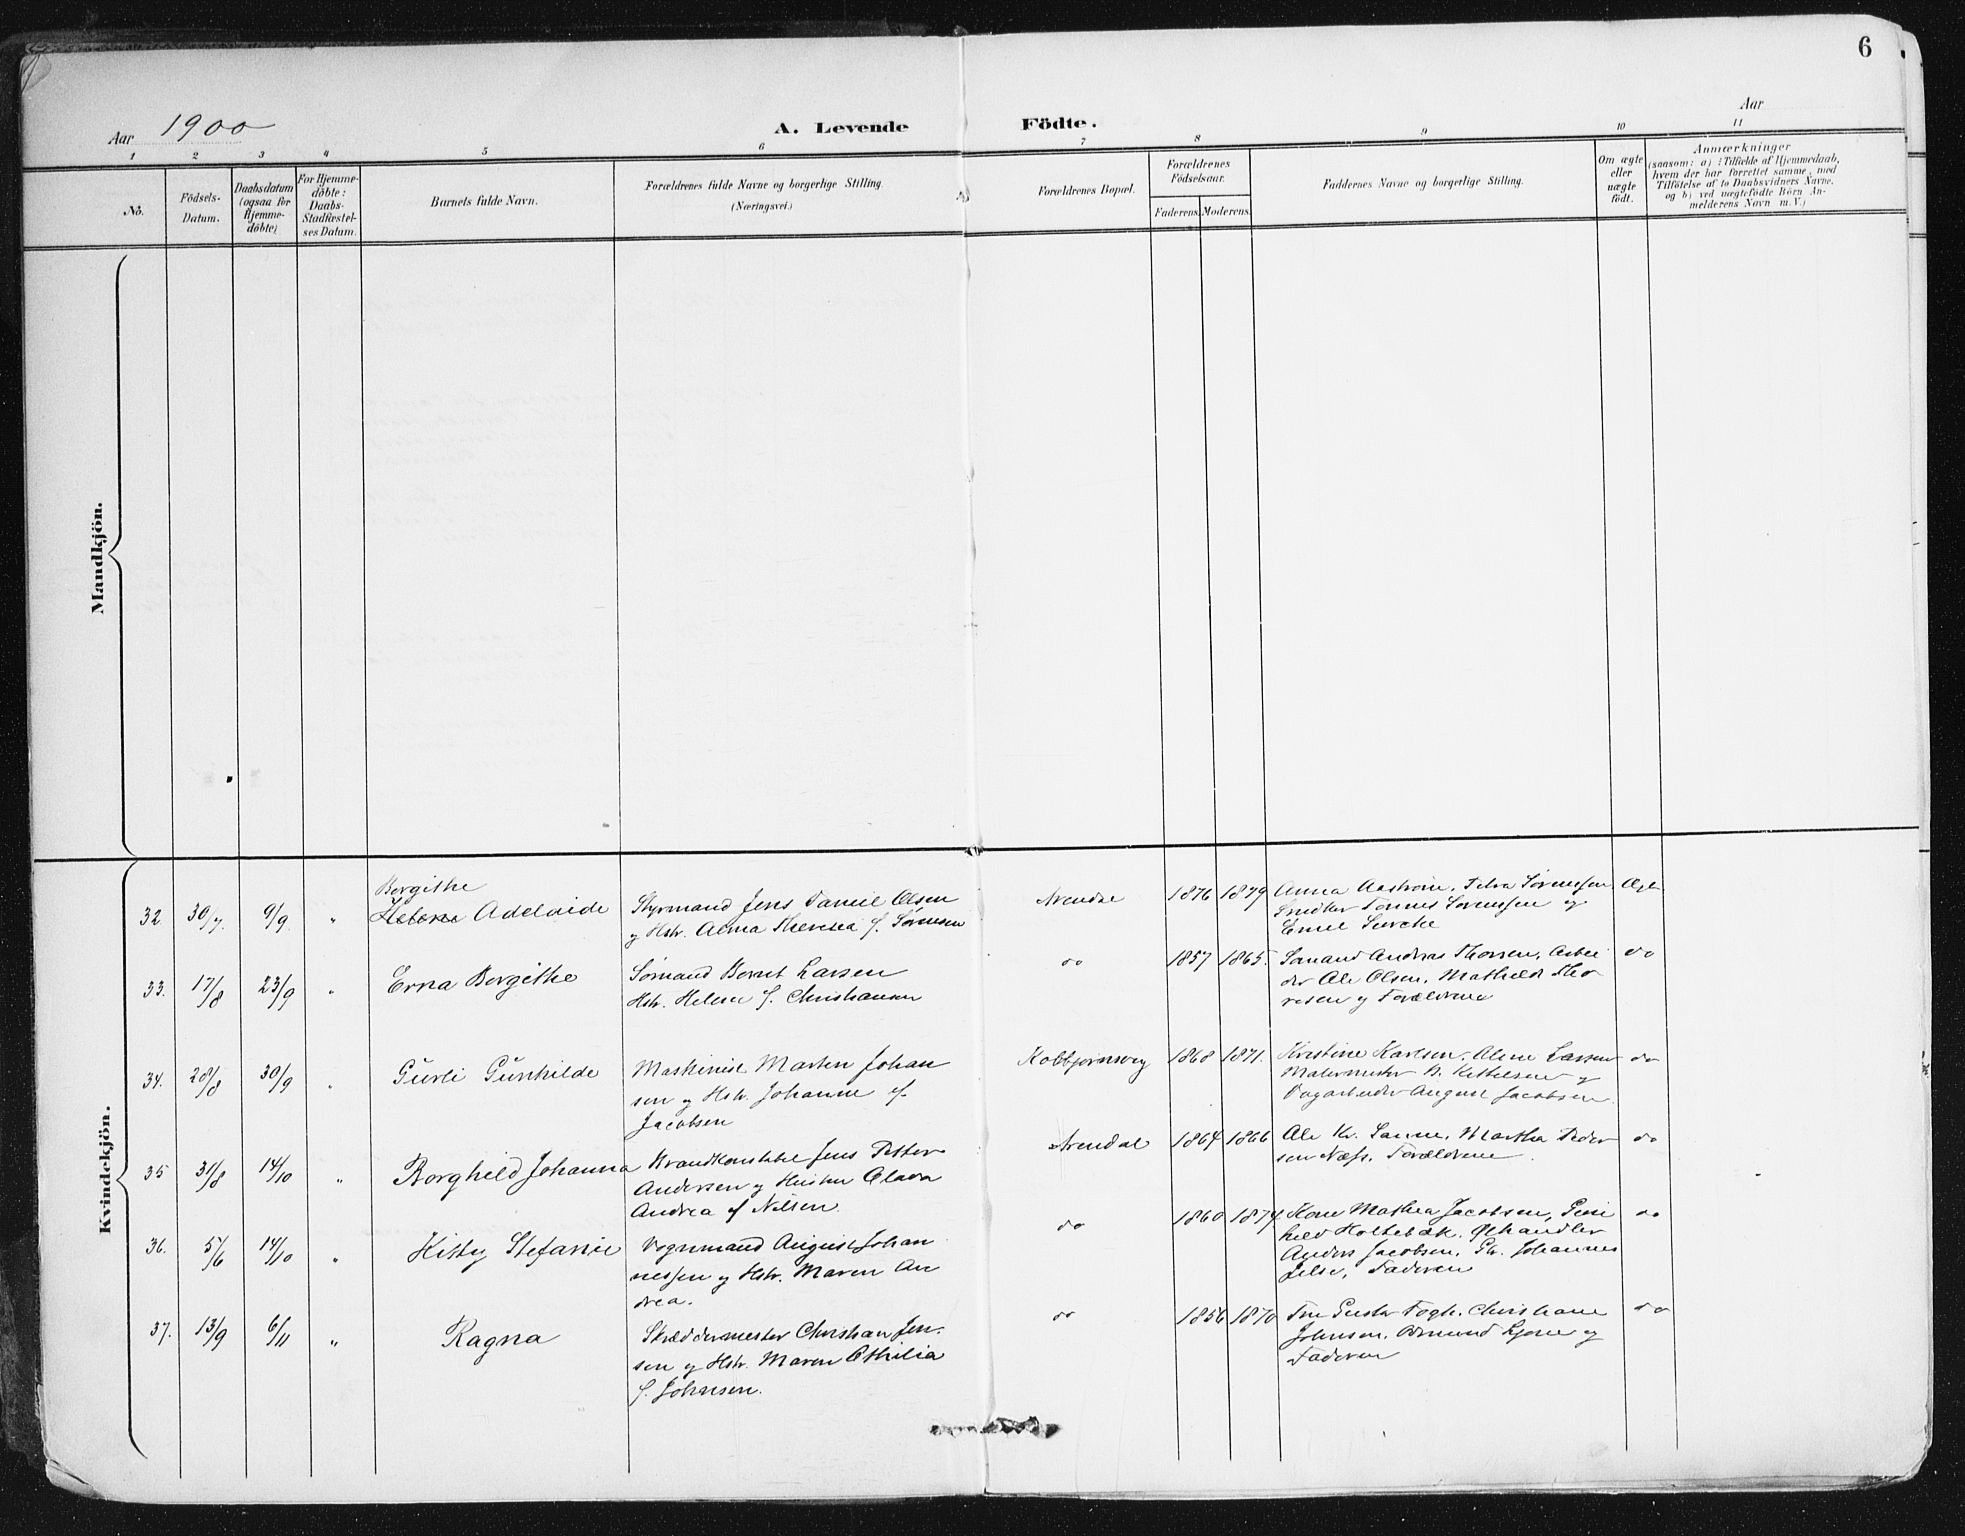 6
Aar 1900
A. Levende Födte.
Aar
1 2 3 4 5 6 7 8 9 10 11
No.
Födsels-Datum.
Daabsdatum (ogsaa for Hjemme-döbte)
For Hjemme-döbte: Daabs-Stadfestel-ses Datum.
Barnets fulde Navn.
Forældrenes fulde Navne og borgerlige Stilling. (Næringsvei.)
Forældrenes Bopæl.
Forældrenes Födselsaar.
Faderens. Moderens.
Faddernes Navne og borgerlige Stilling.
Om ægte eller uægte födt.
Anmærkninger
(saasom: a) i Tilfælde af Hjemmedaab,
hvem der har forrettet samme, med
Tilföielse af to Daabsvidners Navne,
og b) ved uægtefödte Börn An-
melderens Navn m. V.)
Mandkjön.
Kvindekjön.
32 30/7 9/9 " Borgithe Helene Adelaide
Styrmand Jens Daniel Olsen
og Hstr. Alma Theresea f. Sørensen
Arendal 1876 1879
Anna Aastrøm, Petra Sørenssen
Snedker Tønnes Sørenssen og
Emil
Ægt
33. 17/8 23/9 " Erna Borgithe
Sømand Bernt Larsen
Hstr. Helene f. Christiansen
do 1857 1865.
Sømand Andreas Thorsen, Arbei
der Ole Olsen, Mathilde Tho
resen og Forældrene
do
34. 28/8 30/9 " Gurli Gunhilde
Maskinist Marten Johan
sen og Hstr. Johanne f.
Jacobsen
Kolbjørnsvig 1868 1871.
Kristine Karlsen, Aline Larsen
Malermester N. Kittelsen og
August Jacobsen
do
35 31/8 14/10 " Borghild Johanna
Brandkonstabel Jens Petter
Andersen og Hustru Olava
Andrea f Nilsen.
Arendal 1864 1866
Ole Kr. Martha Peder
sen Næss. Forældrene
do
36. 5/6 14/10 " Kitty Stefanie
Vognmand August Johan
nessen og Hstr. Maren An
drea.
do 1860 1874
Kone Mathea Jacobsen,
hild Holtebæk, Ghandler
Anders Jacobsen, Johannes
Jelse, Faderen
do
37. 13/9 6/11 " Ragna
Skræddermester Christian Jen-
sen og Hstr. Maren Othilia
f. Johnsen.
do 1856 1870
Fru Gusta Fogh, Christiane
Johnsen, og
Faderen
do